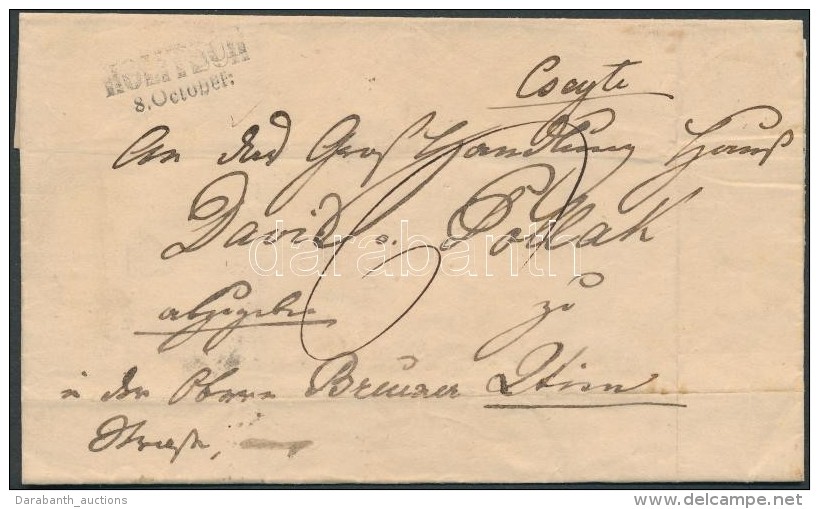 HOLITSCH
8. October:
An das Groß Handlung Haus
David v. Pollak
abzugeben zu
in der Obern Breuner Wien
Straße,
darabanth
Darabanth_auctions
www.delcampe.net